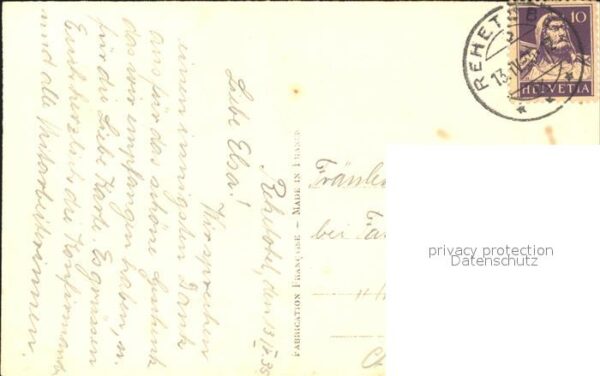 Rehetobel, den 13. IV. 35
Liebe Elsa!
Wir sprechen
einen innigsten Dank
aus für das schöne Geschenk
das wir empfangen haben, u.
für die Liebe Karte. Es grüssen
Euch herzlich die Konfirmanden
und alle Mitarbeiterinnen.
FABRICATION FRANÇAISE – MADE IN FRANCE
REHETOBEL
13. IV.
10
HELVETIA
Fräulein
bei
privacy protection
Datenschutz